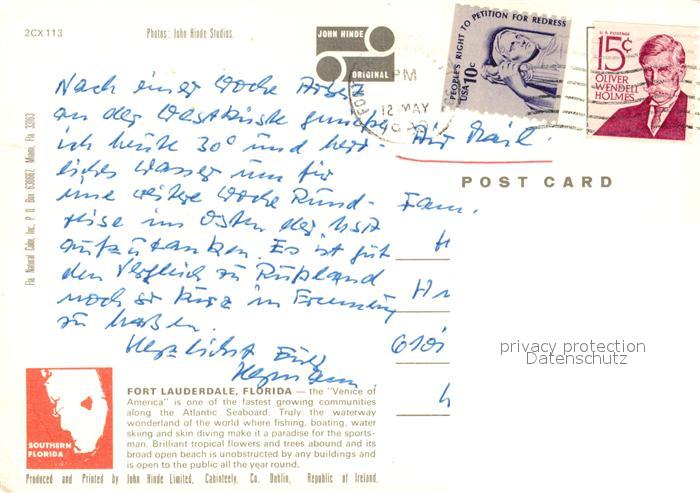 2CX113
Photos: John Hinde Studios.
JOHN HINDE
ORIGINAL
PEOPLE'S RIGHT TO PETITION FOR REDRESS
USA 10c
U.S. POSTAGE
15¢
OLIVER
WENDELL
HOLMES
PM
12 MAY
Air Mail.
POST CARD
Nach einer Woche Arbeit
an der Westküste genieße
ich heute 30° und herr-
liches Wasser um für
eine weitere Woche Rund-
reise im Osten der USA
aufzutanken. Es ist gut
den Vergleich zu Rußland
noch so kurz in Erinnerung
zu haben.
Herzlichst Euer
Hermann
Fam.
H
privacy protection
Datenschutz
Fla Natural Color, Inc., P. O. Box Miami, Fla
SOUTHERN
FLORIDA
FORT LAUDERDALE, FLORIDA — the "Venice of
America" is one of the fastest growing communities
along the Atlantic Seaboard. Truly the waterway
wonderland of the world where fishing, boating, water
skiing and skin diving make it a paradise for the sports-
man. Brilliant tropical flowers and trees abound and its
broad open beach is unobstructed by any buildings and
is open to the public all the year round.
Produced and Printed by John Hinde Limited, Cabinteely, Co. Dublin, Republic of Ireland.